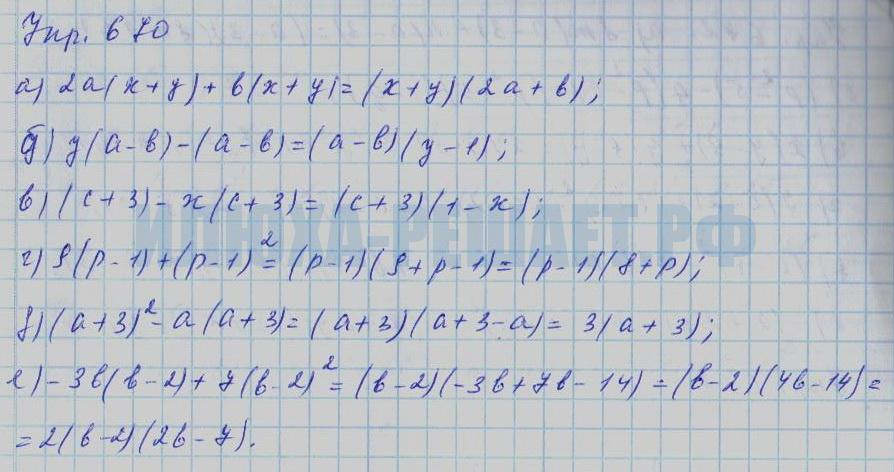 Упр. 670
а) 2а(x+y)+в(x+y)=(x+y)(2а+в);
б) y(а-в)-(а-в)=(а-в)(y-1);
в) (с+3)-x(с+3)=(с+3)(1-x);
ИЛЮХА-РЕШАЕТ.РФ
г) 9(p-1)+(p-1)²=(p-1)(9+p-1)=(p-1)(8+p);
д) (а+3)²-а(а+3)=(а+3)(а+3-а)=3(а+3);
е) -3в(в-2)+7(в-2)²=(в-2)(-3в+7в-14)=(в-2)(4в-14)=
=2(в-2)(2в-7).